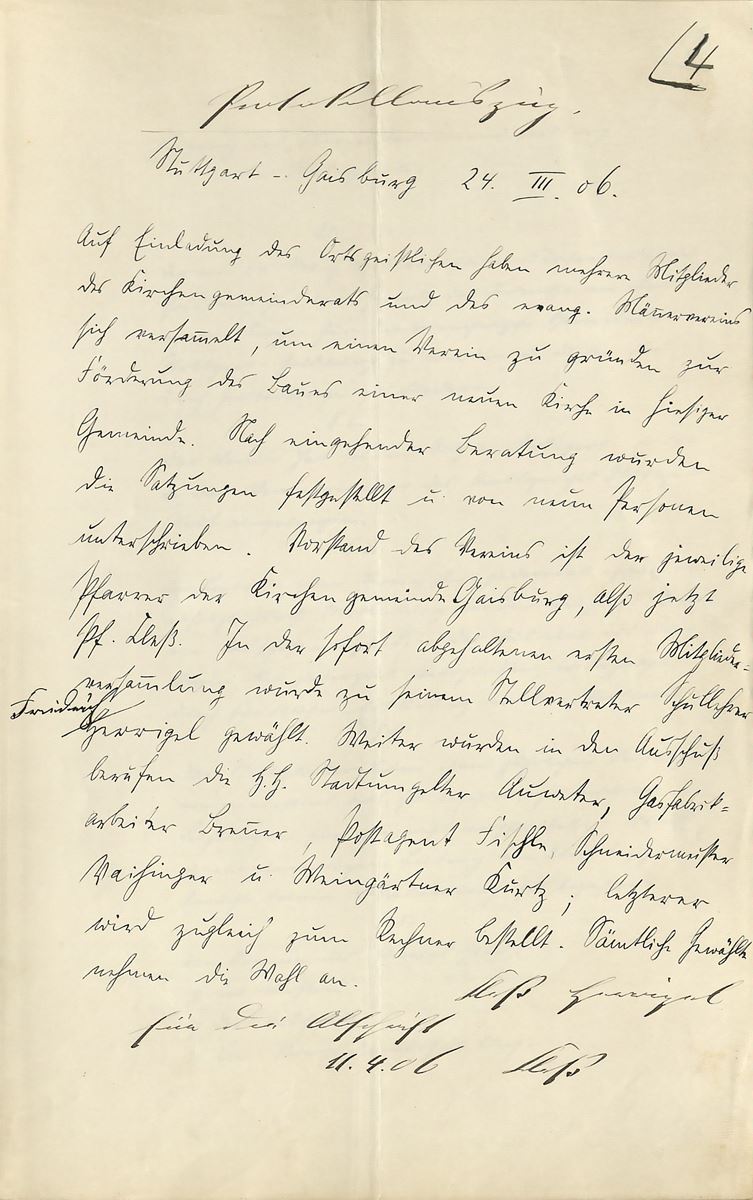 4
Protokollauszug.
Stuttgart - Gaisburg 24. III. 06.
Auf Einladung des Ortsgeistlichen haben mehrere Mitglieder
des Kirchengemeinderats und des evang. Männervereins
sich versam̄elt, um einen Verein zu gründen zur
Förderung des Baues einer neuen Kirche in hiesiger
Gemeinde. Nach eingehender Beratung wurden
die Satzungen festgestellt u. von neun Personen
unterschrieben. Vorstand des Vereins ist der jeweilige
Pfarrer der Kirchengemeinde Gaisburg, also jetzt
Pf. Kleß. In der sofort abgehaltenen ersten Mitglieder=
versam̄lung wurde zu seinem Stellvertreter Schullehrer
Friedrich
Herrigel gewählt. Weiter wurden in den Ausschuß
berufen die H.H. Stadtumgelter Auweter, Gasfabrik=
arbeiter Bren̄er, Postagent Fischle, Schneidermeister
Vaihinger u. Weingärtner Kurtz; letzterer
wird zugleich zum Rechner bestellt. Sämtliche Gewählte
nehmen die Wahl an.
Kleß Herrigel
Für die Abschrift
11.4.06 Kleß